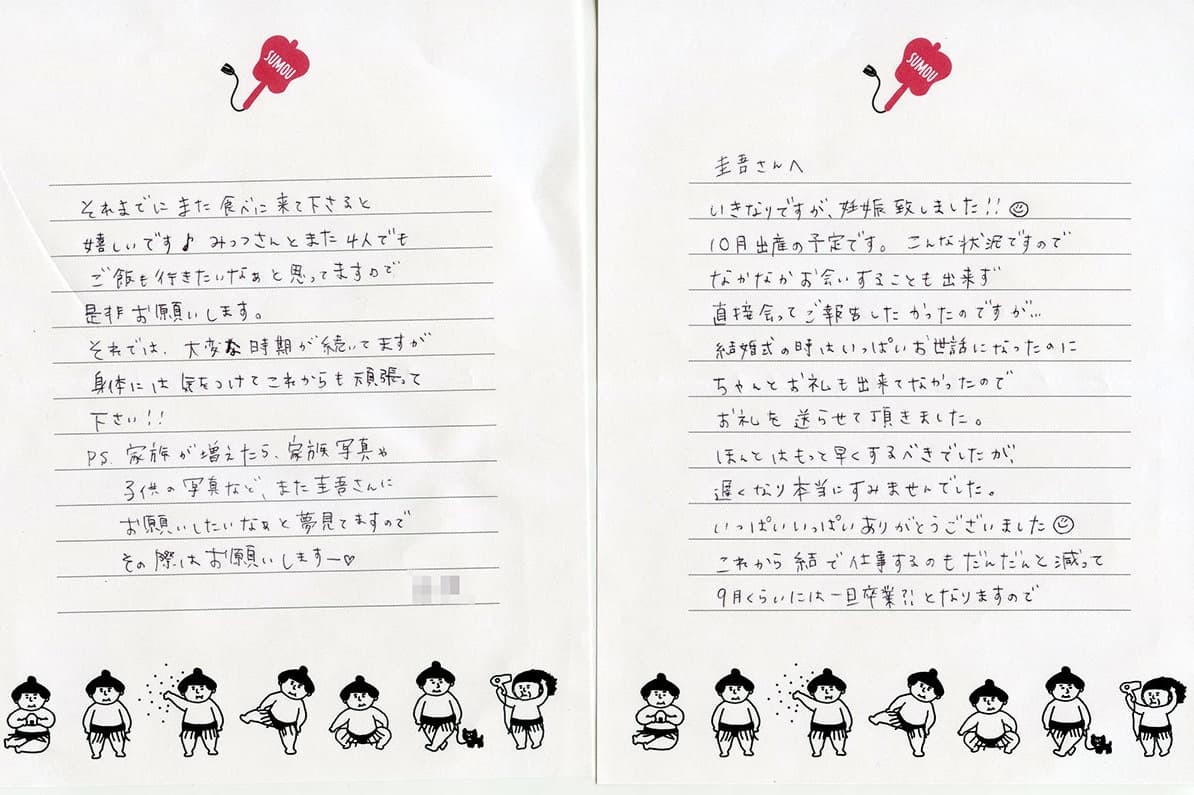 SUMOU
圭吾さんへ
いきなりですが、妊娠致しました!!
10月出産の予定です。こんな状況ですので
なかなかお会いすることも出来ず
直接会ってご報告したかったのですが…
結婚式の時はいっぱいお世話になったのに
ちゃんとお礼も出来てなかったので
お礼を送らせて頂きました。
ほんとはもっと早くするべきでしたが、
遅くなり本当にすみませんでした。
いっぱいいっぱいありがとうございました☺
これから結で仕事するのもだんだんと減って
9月くらいには一旦卒業?!となりますので
SUMOU
それまでにまた食べに来て下さると
嬉しいです♪みっつさんとまた4人でも
ご飯も行きたいなぁと思ってますので
是非お願いします。
それでは、大変な時期が続いてますが
身体には気をつけてこれからも頑張って
下さい!!
PS. 家族が増えたら、家族写真や
子供の写真など、また圭吾さんに
お願いしたいなぁと夢見てますので
その際はお願いしますー♡